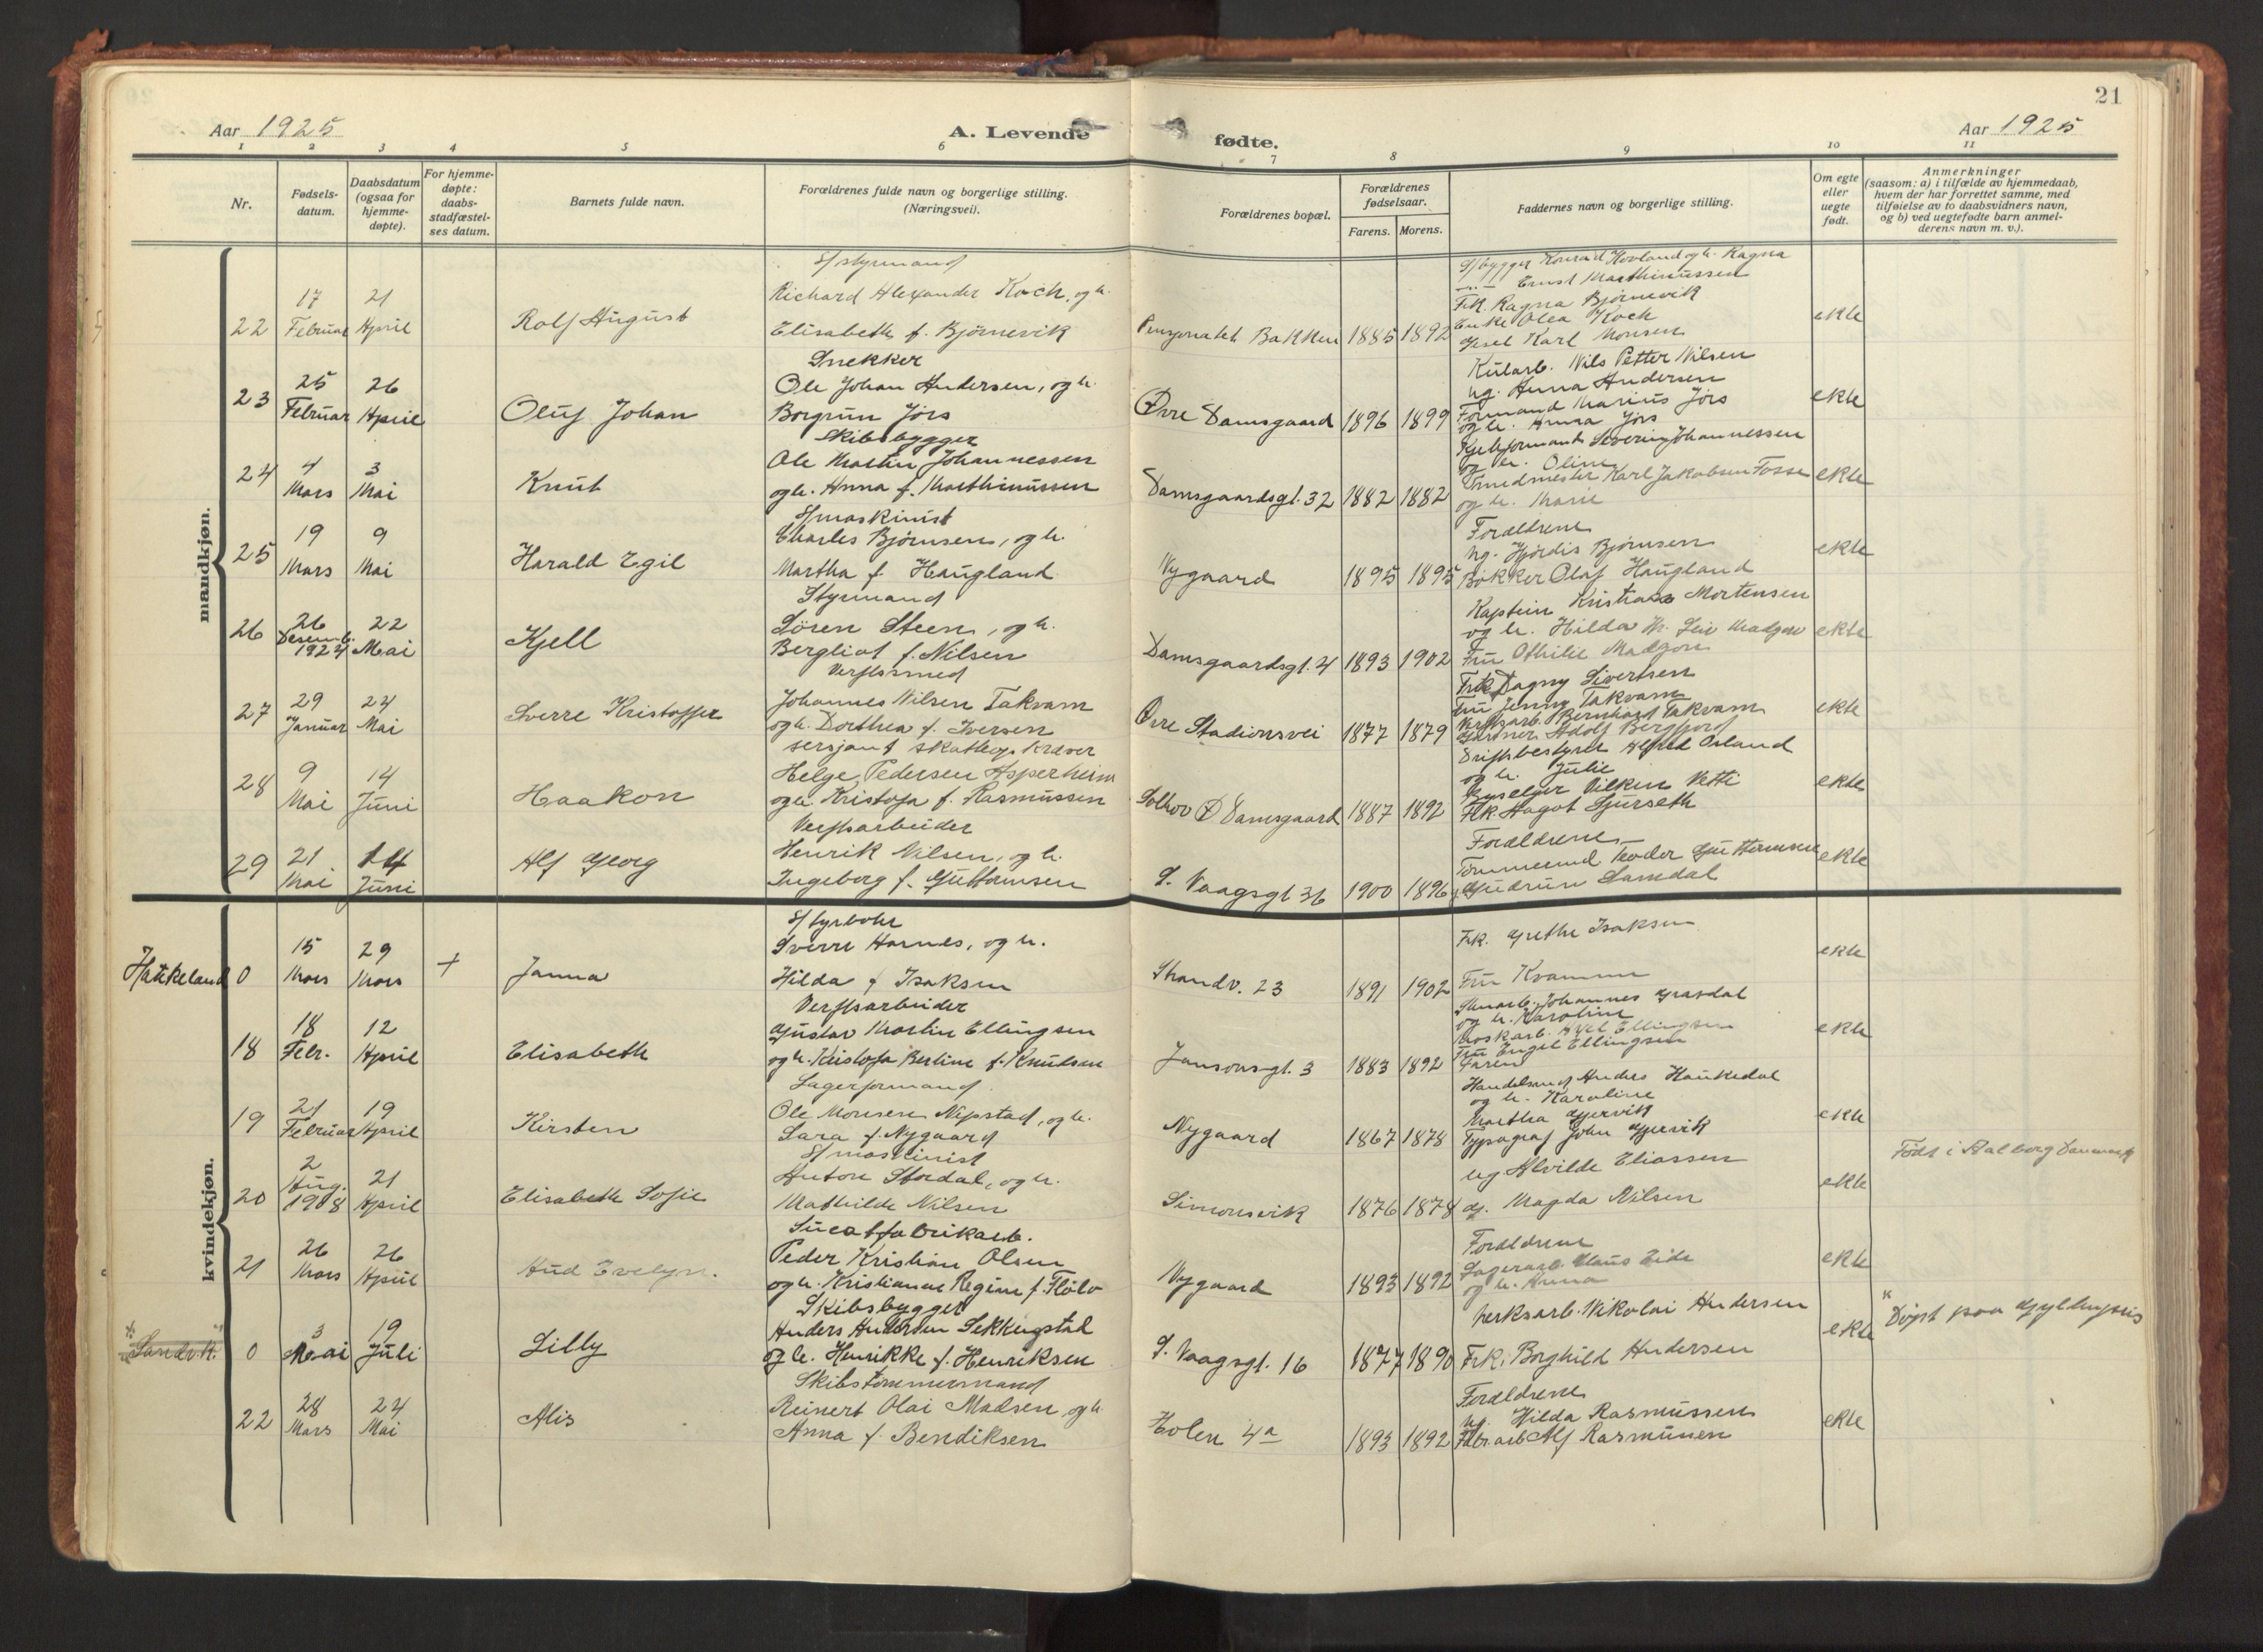 21
Aar 1925
A. Levende fødte.
Aar 1925
1 2 3 4 5 6 7 8 9 10 11
Nr.
Fødsels-
datum.
Daabsdatum
(ogsaa for
hjemme-
døpte).
For hjemme-
døpte:
daabs-
stadfæstel-
ses datum.
Barnets fulde navn.
Forældrenes fulde navn og borgerlige stilling.
(Næringsvei).
Forældrenes bopæl.
Forældrenes
fødselsaar.
Farens. Morens.
Faddernes navn og borgerlige stilling.
Om egte
eller
uegte
født.
Anmerkninger
(saasom: a) i tilfælde av hjemmedaab,
hvem der har forrettet samme, med
tilføielse av to daabsvidners navn,
og b) ved uegtefødte barn anmel-
derens navn m. v.).
mandkjøn.
22
17
Februar
21
April
Rolf August
S/styrmand
Richard Alexander Koch, og h.
Elisabeth f. Bjørnevik
Pensjonatet Bakken
1885 1892
S/bygger Konrad Hovland og h. Ragna
Ernst Marthinussen
Frk. Ragna Bjørnevik
Enke Olea Koch
Karl Monsen
ekte
23
25
Februar
26
April
Oluf Johan
Snekker
Ole Johan Andersen, og h.
Borgrun Jørs
Øvre Damsgaard
1896 1899
Kularb. Nils Petter Nilsen
ug. Anna Andersen
Formand Marius Jørs
og h. Anna Jørs
ekte
24
4
Mars
3
Mai
Knut
Skibsbygger
Ole Martin Johannessen
og h. Anna f. Marthinussen
Damsgaardsgt. 32
1882 1882
Severin Johannessen
og h. Oline
Smedmester Karl Jakobsen Fosse
og h. Marie
ekte
25
19
Mars
9
Mai
Harald Egil
S/maskinist
Charles Bjørnsen, og h.
Martha f. Haugland
Nygaard
1895 1895
Forældrene
ug. Hjørdis Bjørnsen
Bøkker Olaf Haugland
ekte
26
26
Desemb.
1924
22
Mai
Kjell
Styrmand
Søren Steen, og h.
Bergliot f. Nilsen
Damsgaardsgt. 4
1893 1902
Kaptein Kristian Mortensen
og h. Hilda
Fru Othilie Madgon
Frk Dagny Sivertsen
ekte
27
29
Januar
24
Mai
Sverre Kristoffer
Verftssmed
Johannes Nilsen Takvam
og h. Dorthea f. Iversen
Øvre Stadionsvei
1877 1879
Fru Jenny Takvam
Verftsarb. Bernhard Takvam
Gartner Adolf Bergfjord
ekte
28
9
Mai
14
Juni
Haakon
sersjant skatteopkræver
Helge Pedersen Asperheim
og h. Kristofa f. Rasmussen
Solhov Ø Damsgaard
1887 1892
Driftsbestyrer Alfred Osland
og h. Julie
Byselger Vilken Vetti
Frk. Aagot Sjurseth
ekte
29
21
Mai
14
Juni
Alf Georg
Verftsarbeider
Henrik Nilsen, og h.
Ingeborg f. Guttormsen
S. Vaagsgt 36
1900 1896
Forældrene
Tømmermd Peder Guttormsen
Gudrun Samdal
ekte
kvindekjøn.
Haukeland
0
15
Mars
29
Mars
+
Janna
S/fyrbøter
Sverre Hornes, og h.
Hilda f Isaksen
Strandv. 23
1891 1902
Frk. Grethe Isaksen
Fru Kvamme
ekte
18
18
Febr.
12
April
Elisabeth
Verftsarbeider
Gustav Martin Ellingsen
og h. Kristofa Berline f. Knudsen
Jansonsgt. 3
1883 1892
Johannes Grasdal
og h. Karoline
Maskarb. Axel Ellingsen
Fru Engel Ellingsen
Faren
ekte
19
21
Februar
19
April
Kirsten
Lagerformand
Ole Monsen Nipstad, og h.
Sara f. Nygaard
Nygaard
1867 1878
Handelsmd Anders Haukedal
og h. Karoline
Martha Gjervik
Typograf John Gjervik
ekte
20
2
Aug.
1908
21
April
Elisabeth Sofie
S/maskinist
Anton Stordal, og h.
Mathilde Nilsen
Simonsvik
1876 1878
ug Alvilde Eliassen
g. Magda Nilsen
ekte
Født i Aalborg Danmark
21
26
Mars
26
April
Aud Evelyn.
Peder Kristian Olsen
og h. Kristianne Regine f. Fløtv
Nygaard
1893 1892
Forældrene
Lagerarb. Claus Eide
og h. Anna
ekte
"Sandvik."
0
3
Mai
19
Juli
Lilly
Skibsbygger
Anders Andersen Sekkingstad
og h. Henrikke f. Henriksen
S. Vaagsgt. 16
1877 1890
Verksarb. Nikolai Andersen
Frk. Borghild Andersen
ekte
Døpt paa Gyldenpris
22
28
Mars
24
Mai
Alis
Skibstømmermand
Reinert Olai Madsen, og h
Anna f. Bendiksen
Holen 4a
1893 1892
Forældrene
ug. Hilda Rasmussen
Fabr.arb Alf Rasmussen
ekte